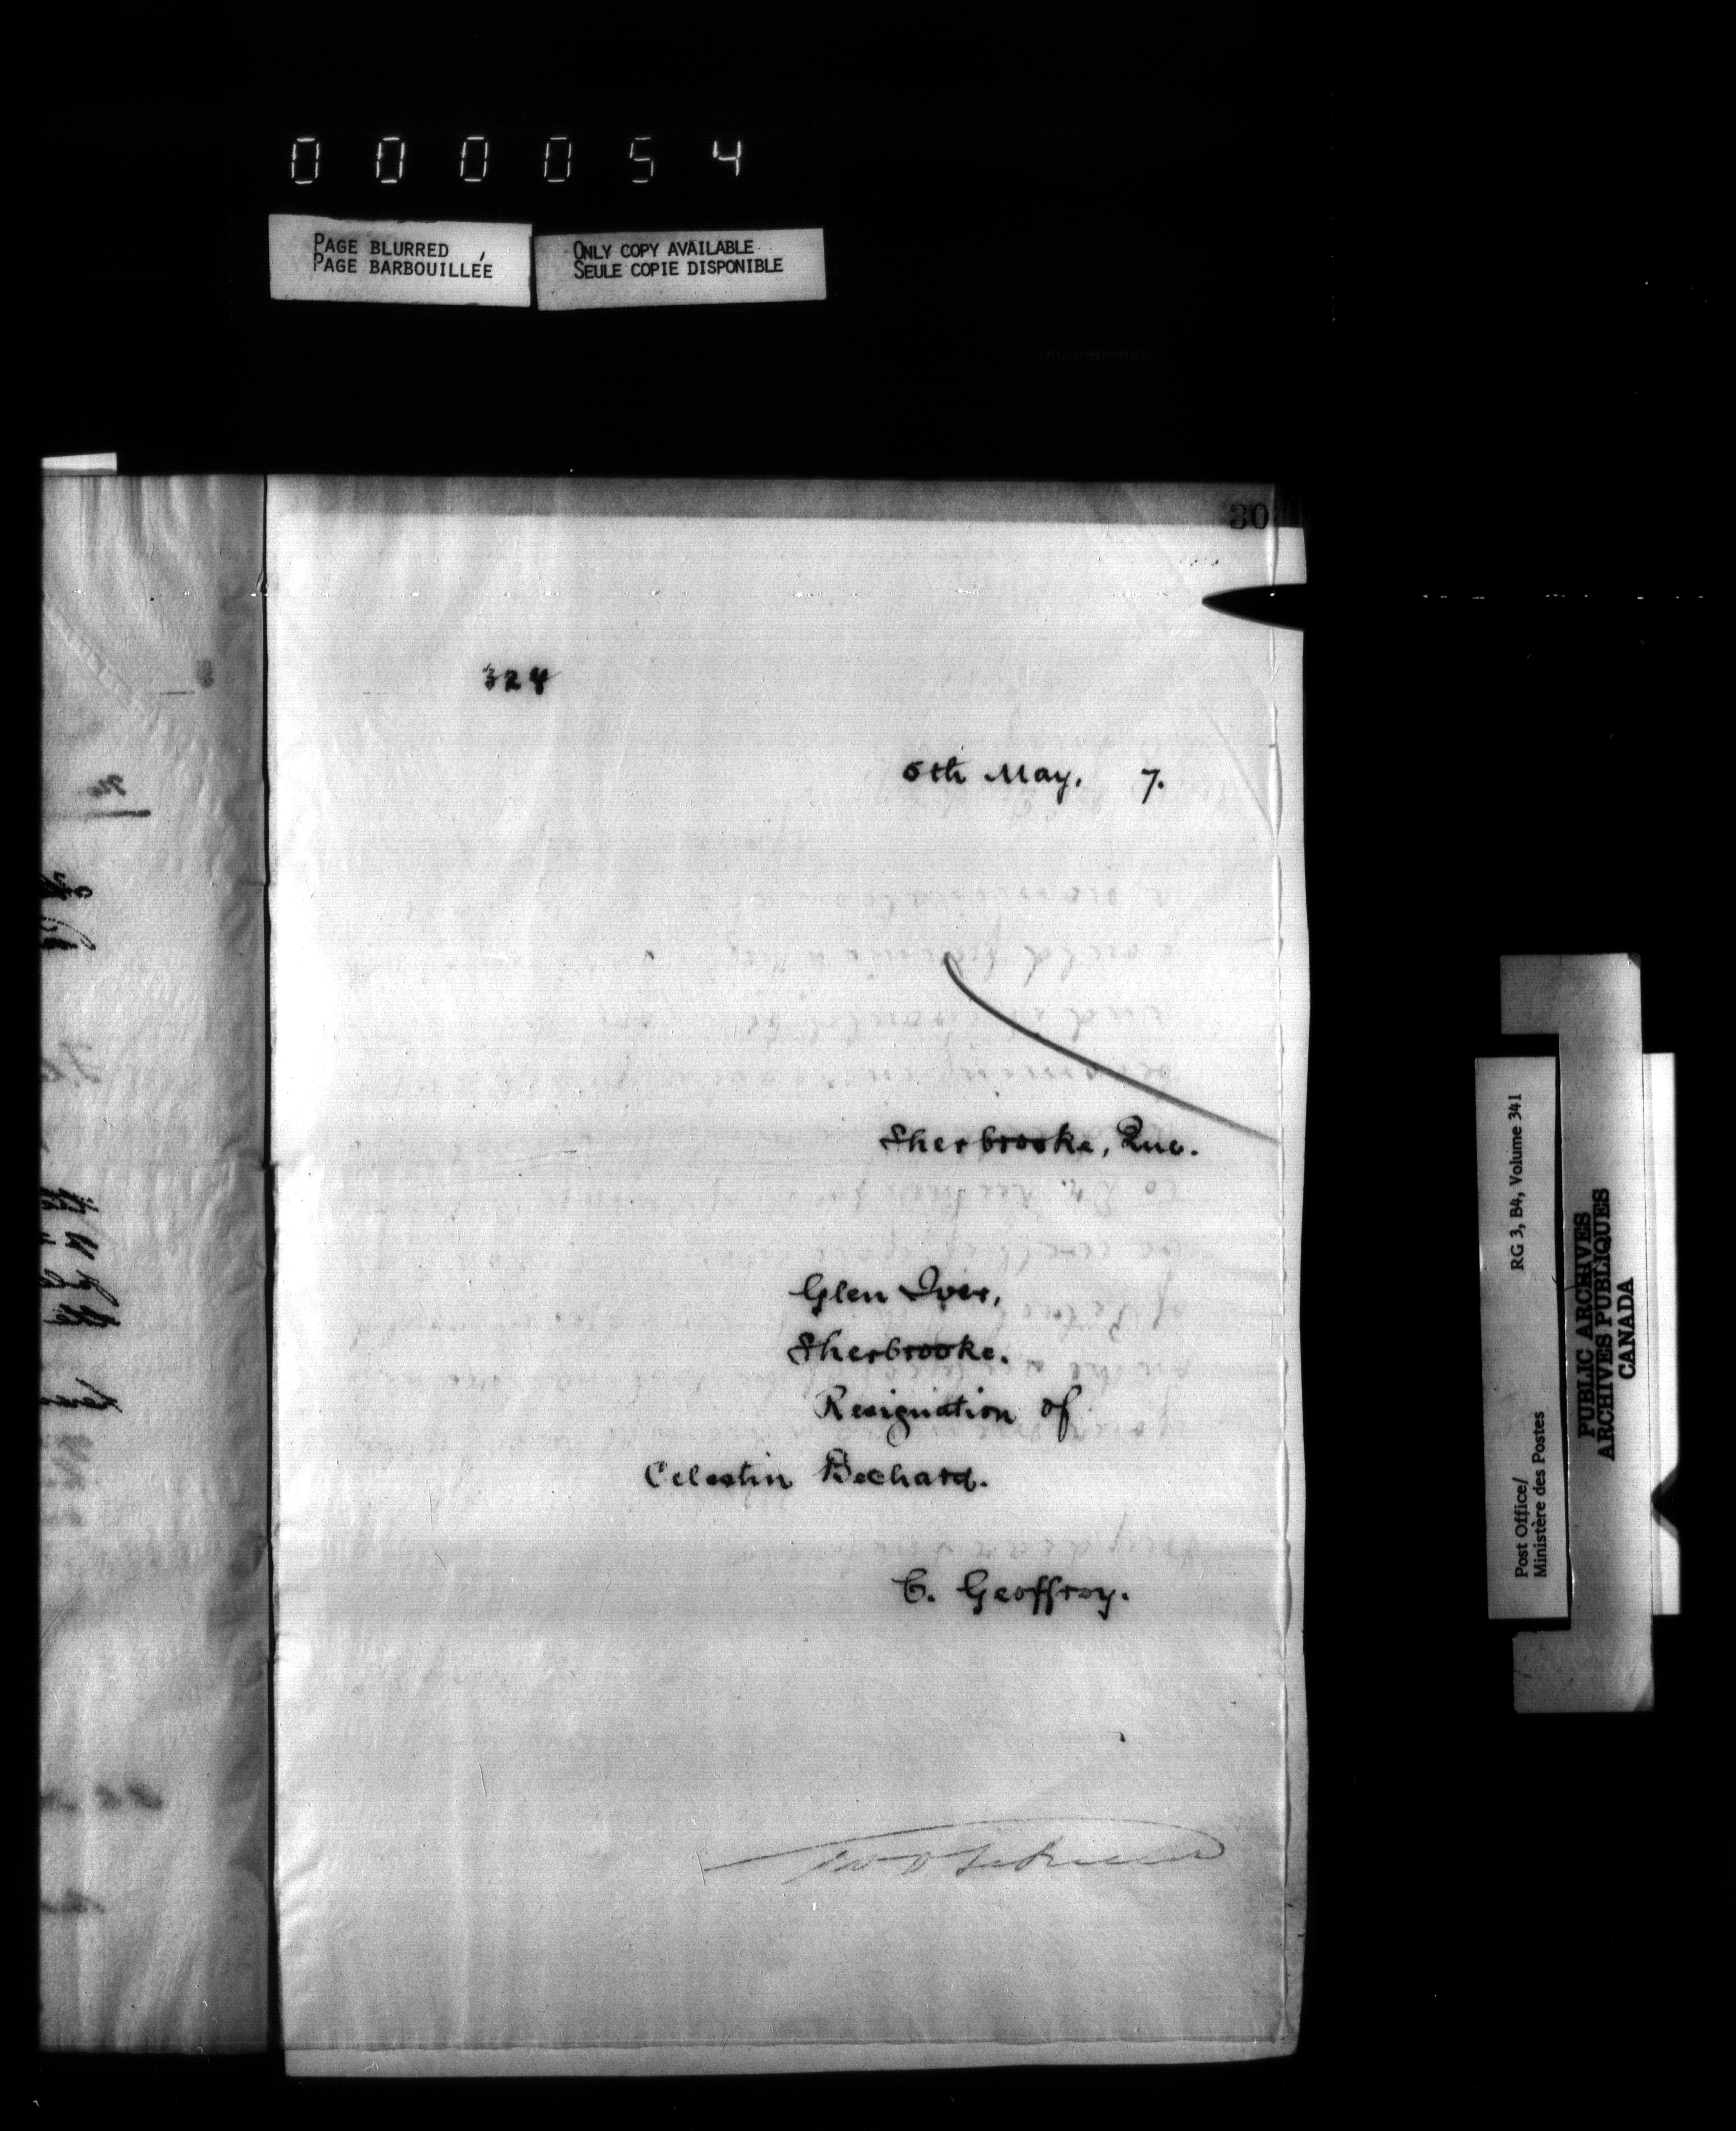 000054
PAGE BLURRED
PAGE BARBOUILLÉE
ONLY COPY AVAILABLE
SEULE COPIE DISPONIBLE
30
324
5th May, 7.
Sherbrooke, Que.
Glen Iver,
Sherbrooke.
Resignation of
Celestin Bechard.
C. Geoffroy.
Post Office/
Ministère des Postes
RG 3, B4, Volume 341
PUBLIC ARCHIVES
ARCHIVES PUBLIQUES
CANADA